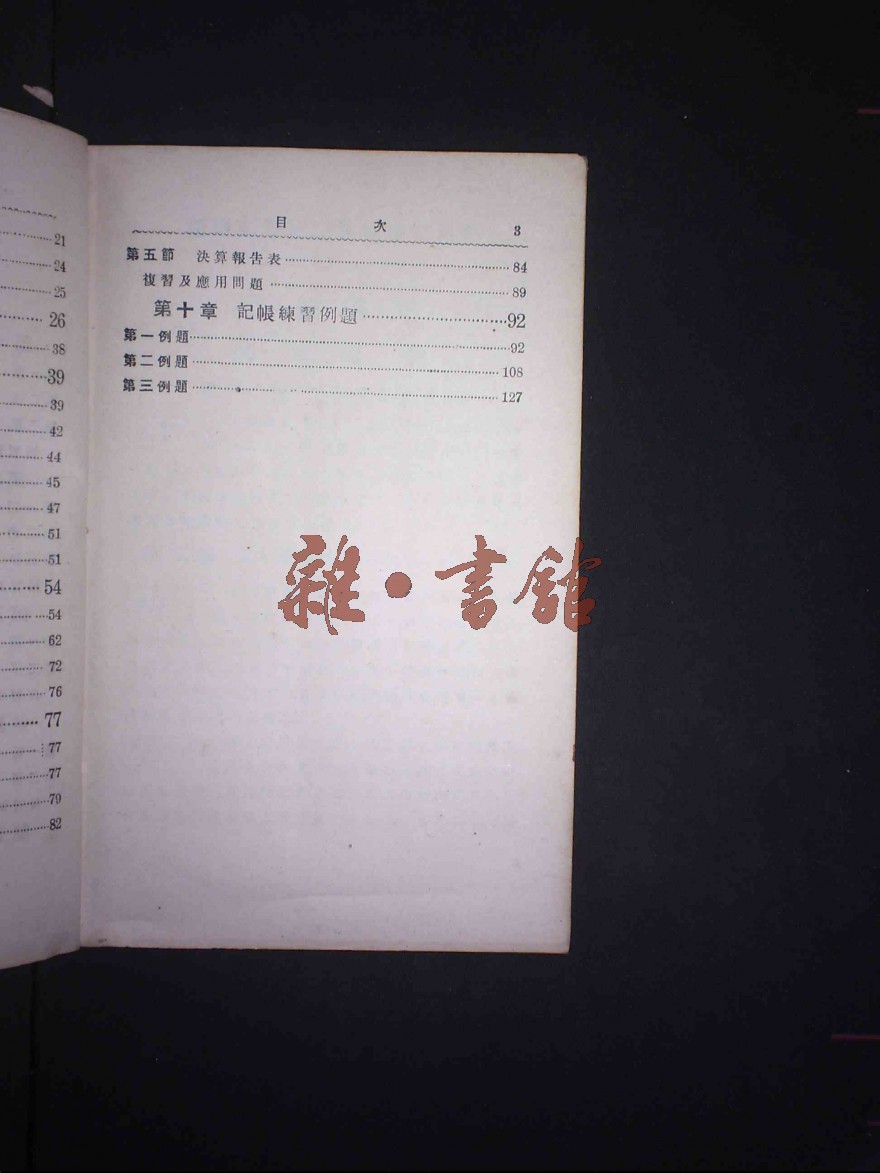 21
24
25
26
38
39
39
42
44
45
47
51
51
54
54
62
72
76
77
77
77
79
82
目 次 3
第五節 決算報告表 84
複習及應用問題 89
第十章 記帳練習例題 92
第一例題 92
第二例題 108
第三例題 127
雜·書館